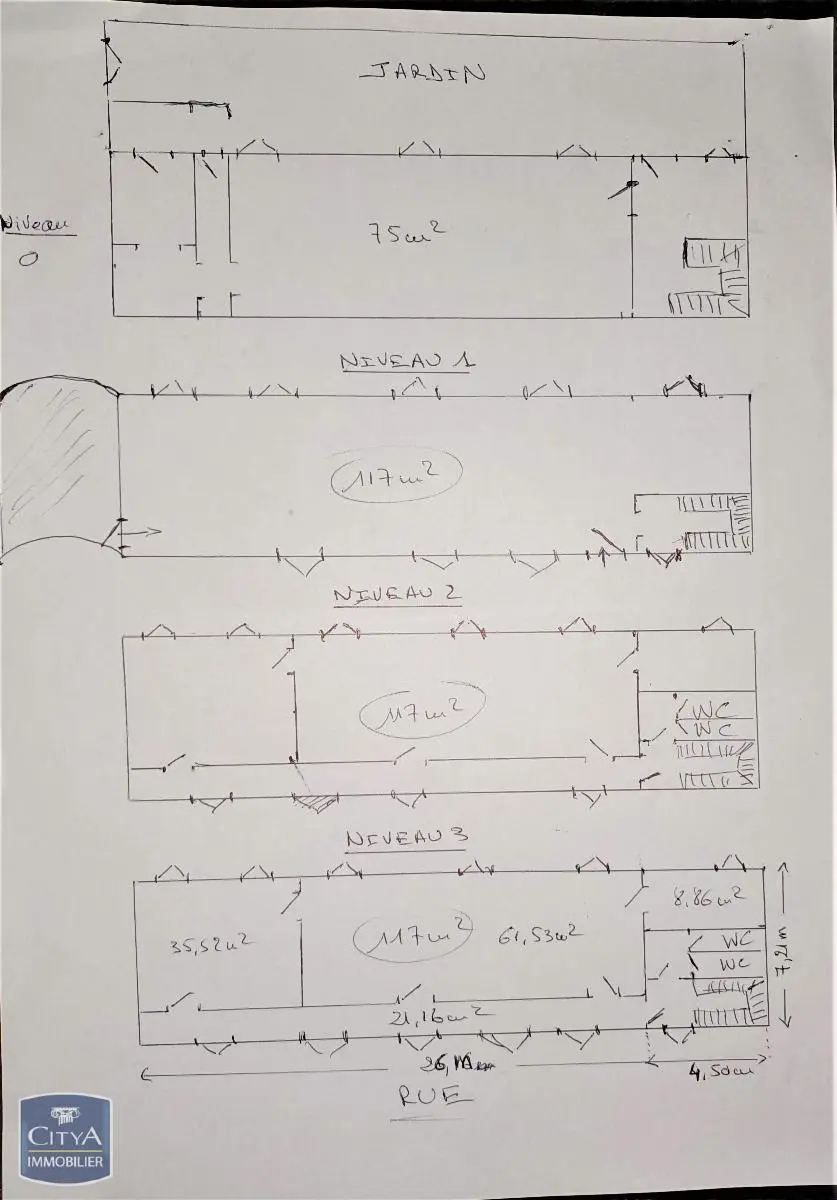 JARDIN
Niveau
0
75m²
NIVEAU 1
117m²
NIVEAU 2
117m²
WC
WC
NIVEAU 3
8,86m²
35,52m²
117m²
61,53m²
WC
WC
7,21m
21,16m²
4,50m
RUE
CITYA
IMMOBILIER